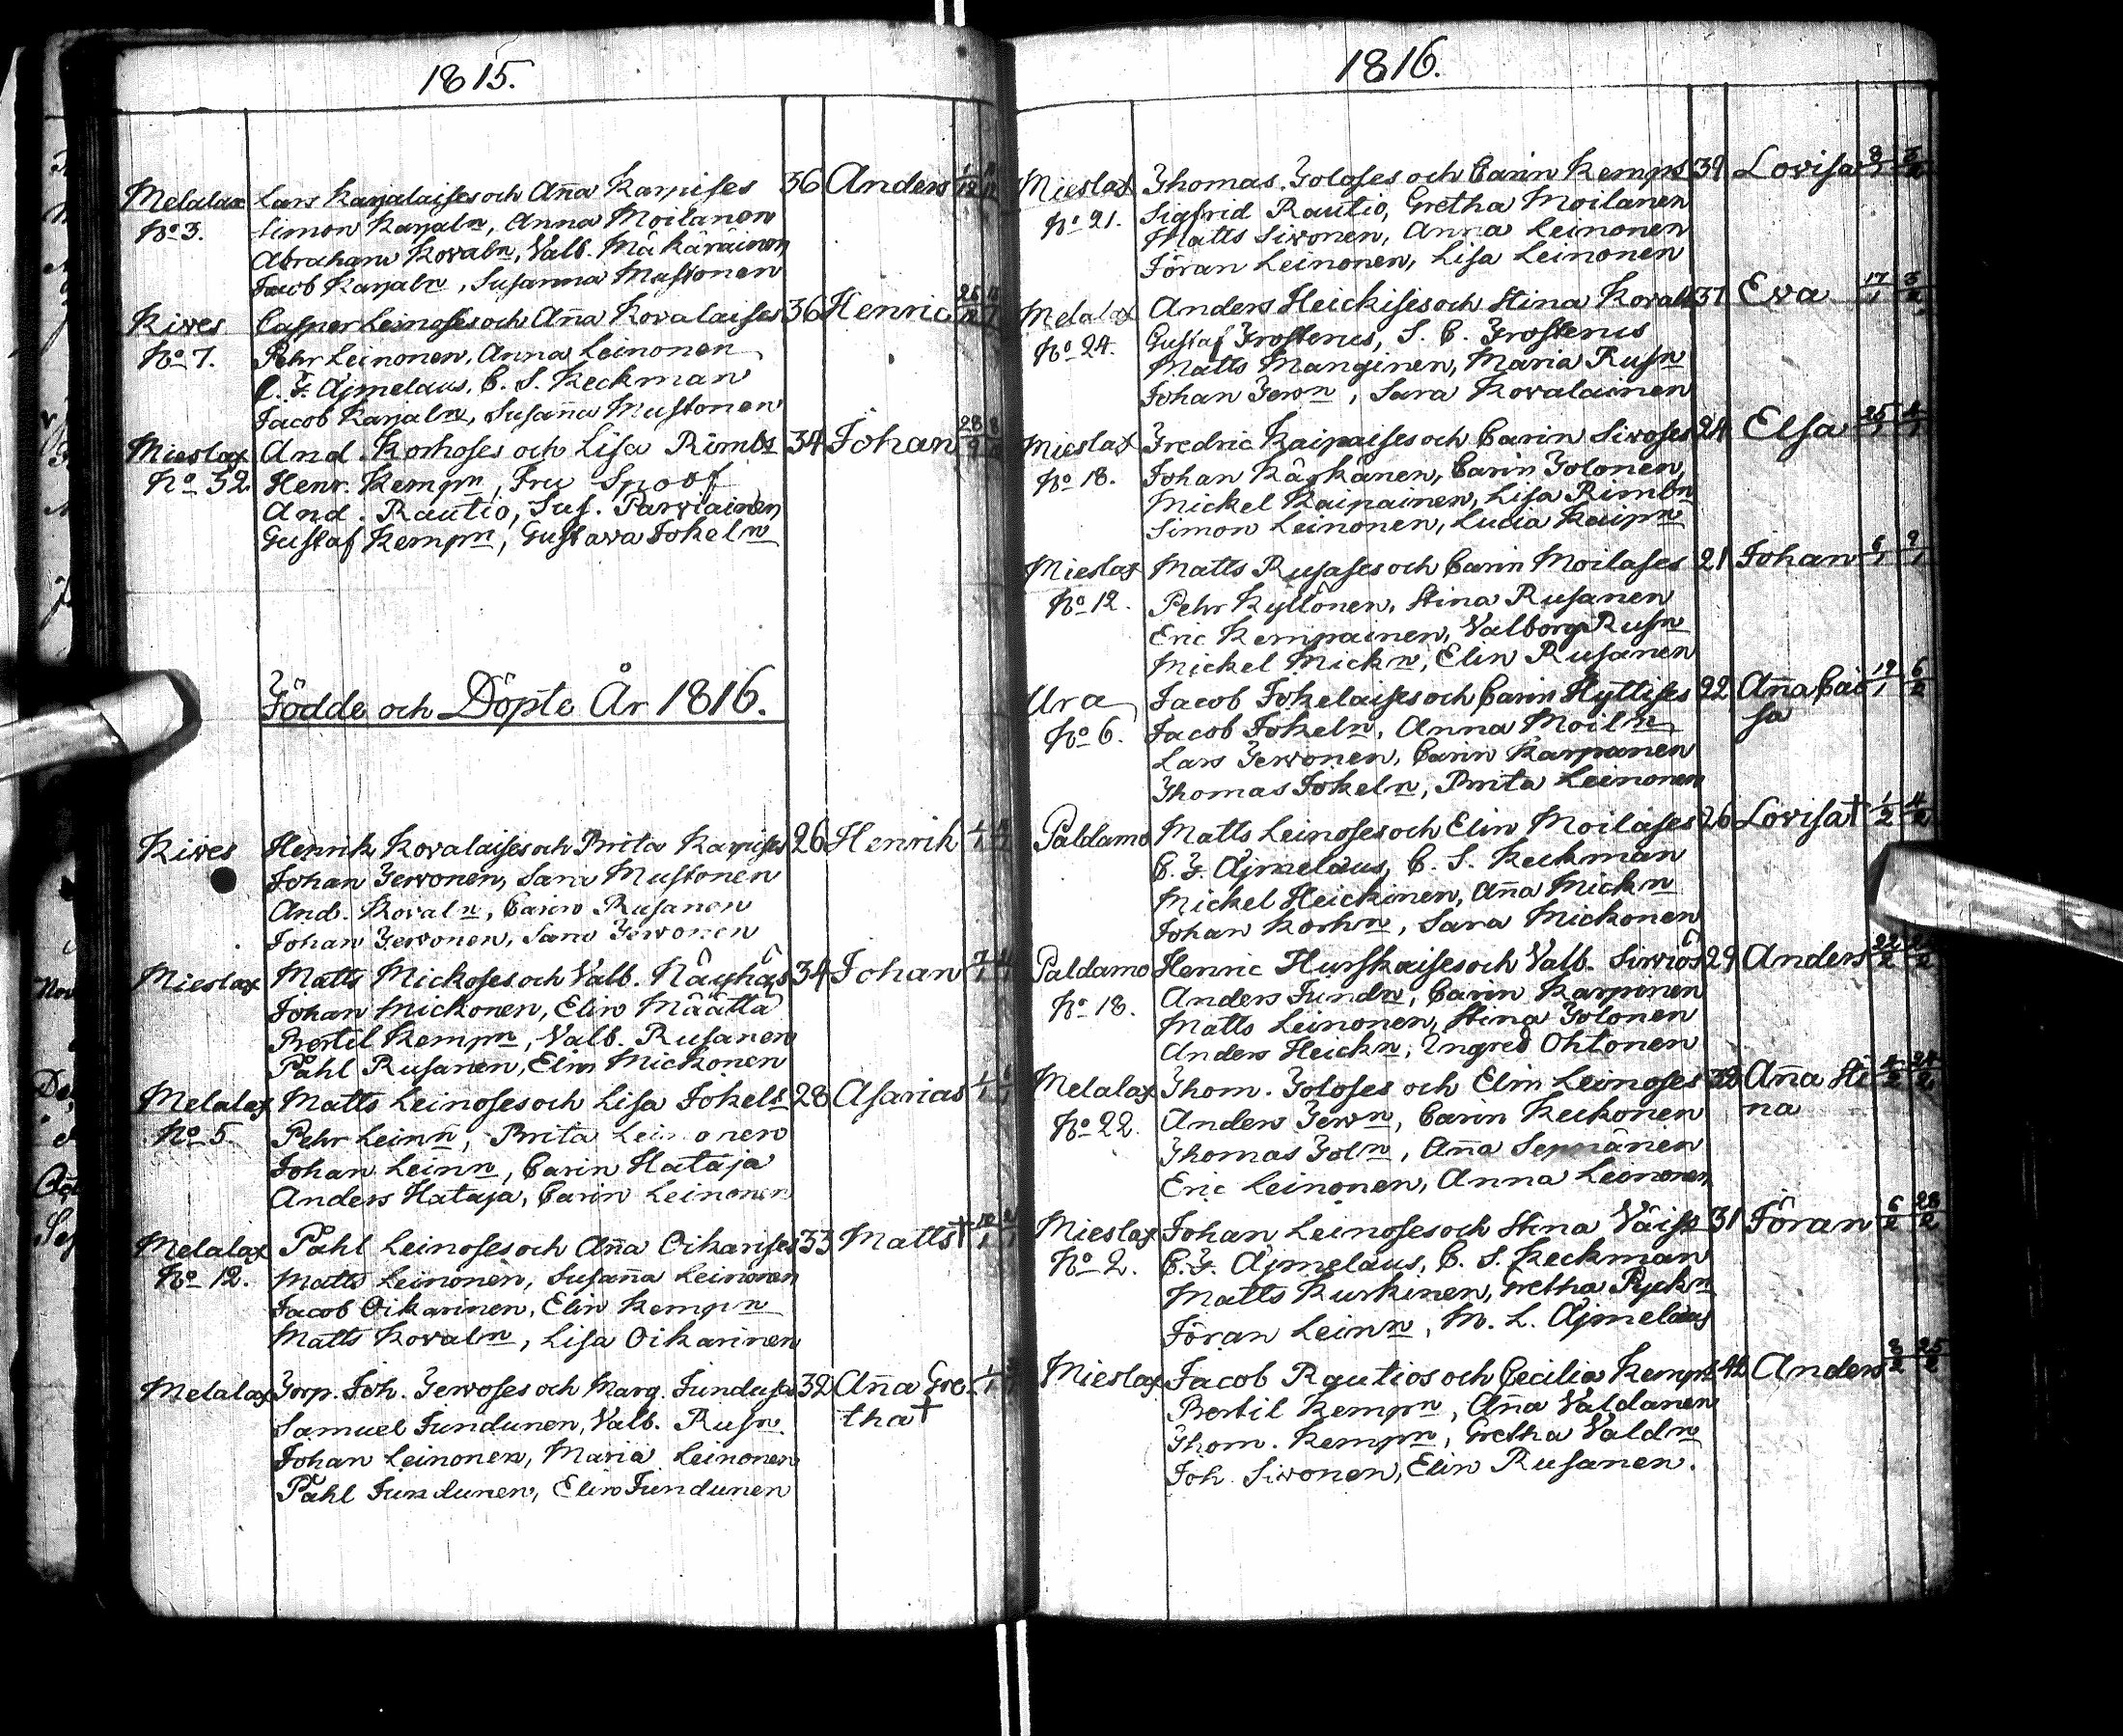 1815.
Melalax Lars Karjalaises och Aña Karpises 36 Anders
No 3. Simon Karjaln, Anna Moilanen
Abraham Kovaln, Valb. Mäkäräinen
Jacob Karjaln, Susanna Mustonen
Kives Casper Leinoses och Aña Kovalaises 36 Henric
No 7. Pehr Leinonen, Anna Leinonen
C. F. Ajmelaus, C. S. Keckman
Jacob Karjaln, Susaña Mustonen
Mieslax And. Korhoses och Lisa Rimbs 34 Johan 28/9
No 32. Henr. Kempn, Fru Spoof
And. Rautio, Sus. Parviainen
Gustaf Kempn, Gustava Jokeln
Födde och Döpte År 1816.
Kives Henrik Kovalaises och Brita Karpises 26 Henrik
Johan Yervonen, Sara Mustonen
And. Kovaln, Carin Rusanen
Johan Yervonen, Sara Yervonen
Mieslax Matts Mickoses och Valb. 34 Johan
Johan Mickonen, Elin Määttä
Bertil Kempn, Valb. Rusanen
Påhl Rusanen, Elin Mickonen
Melalax Matts Leinoses och Lisa Jokels 28 Asarias
No 5. Pehr Leinn, Brita Leinonen
Johan Leinn, Carin Hataja
Anders Hataja, Carin Leinonen
Melalax Påhl Leinoses och Aña Oikarises 33 Matts†
No 12. Matts Leinonen, Susaña Leinonen
Jacob Oikarinen, Elin Kempn
Matts Kovaln, Lisa Oikarinen
Melalax Torp. Joh. Yervoses och Marg. Junduses 32 Aña Gre-
Samuel Jundunen, Valb. Rusn tha†
Johan Leinonen, Maria Leinonen
Påhl Jundunen, Elin Jundunen
1816.
Mieslax Thomas Toloses och Carin Kemps 39 Lovisa
No 21. Sigfrid Rautio, Gretha Moilanen
Matts Sivonen, Anna Leinonen
Jöran Leinonen, Lisa Leinonen
Melalax Anders Heickises och Stina Kovals 37 Eva 17/1
No 24. Gustaf Frosterus, S. C. Frosterus
Matts Manginen, Maria Rusn
Johan Yervn, Sara Kovalainen
Mieslax Fredric Kaipaises och Carin Sivoses 24 Elsa
No 18. Johan Kärkänen, Carin Tolonen
Mickel Kaipainen, Lisa Rimbn
Simon Leinonen, Lucia Kaipn
Mieslax Matts Rusases och Carin Moilases 21 Johan 6/1 9/1
No 12. Pehr Kyllönen, Stina Rusanen
Eric Kempainen, Valborg Rusn
Mickel Mickn, Elin Rusanen
Ura Jacob Jokelaises och Carin Hyttises 22 Aña Cai 19/1 6/2
No 6. Jacob Jokeln, Anna Moiln sa
Lars Yervonen, Carin Karpanen
Thomas Jokeln, Brita Leinonen
Paldamo Matts Leinoses och Elin Moilases 26 Lovisa† 1/2 11/2
C. F. Ajmelaus, C. S. Keckman
Mickel Heickinen, Aña Mickn
Johan Korhn, Sara Mickonen
Paldamo Henric Hurskaises och Valb. Sirviös 29 Anders
No 18. Anders Jundn, Carin Karpinen
Matts Leinonen, Stina Tolonen
Anders Heickn, Ingred Ohtonen
Melalax Thom. Toloses och Elin Leinoses Aña Sti 4/2 24/2
No 22. Anders Yervn, Carin Keckonen na
Thomas Toln, Aña Seppänen
Eric Leinonen, Anna Leinonen
Mieslax Johan Leinoses och Stina Väiss 31 Jöran 6/2 28/2
No 2. C. F. Ajmelaus, C. S. Keckman
Matts Kurkinen, Gretha Pyckn
Jöran Leinn, M. L. Ajmelaus
Mieslax Jacob Rautios och Cecilia Kemps Anders 3/2 25/2
Bertil Kempn, Aña Valdanen
Thom. Kempn, Gretha Valdn
Joh. Sivonen, Elin Rusanen.